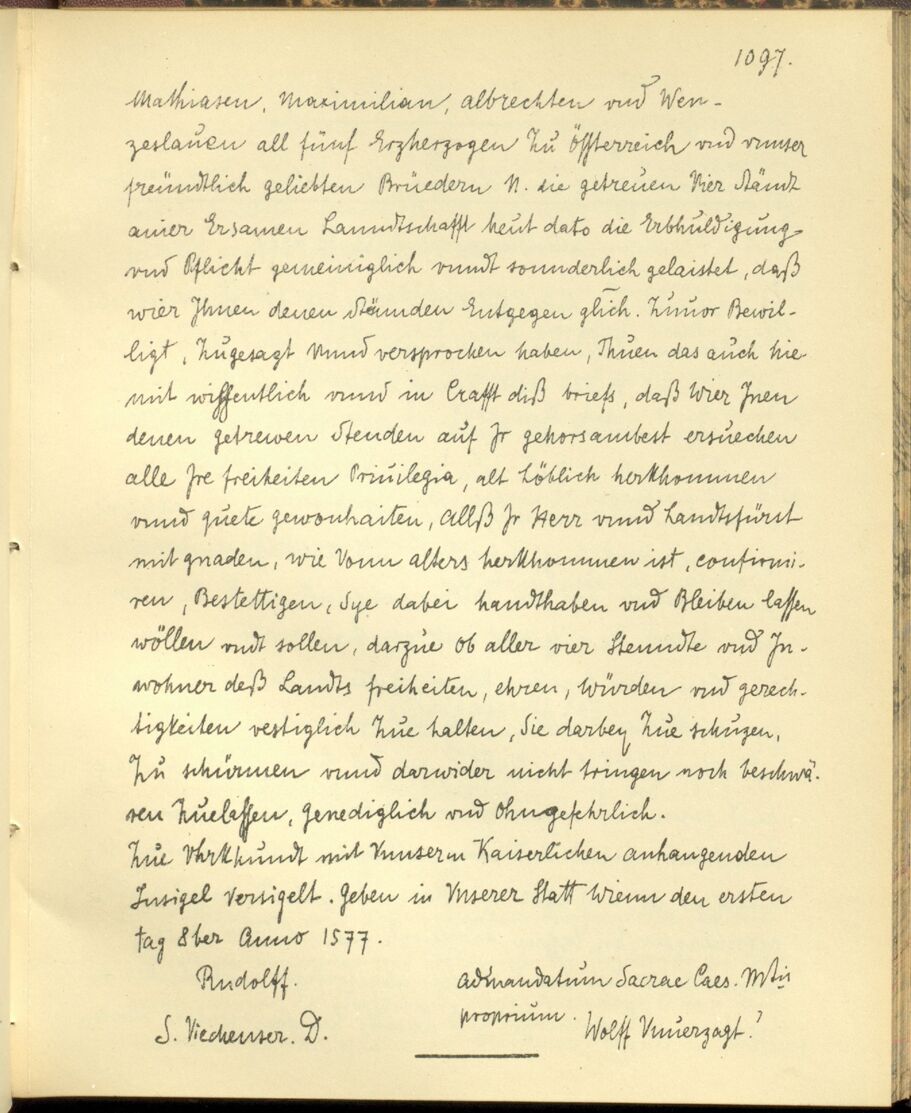 1097.
Mathiasen, Maximilian, albrechten vnd Wen-
zeslauen all fünf Erzherzogen Zu Össterreich vnd vnnser
freündtlich geliebten Brüedern N. die getreuen Vier Ständt
ainer Ersamen Lanndtschafft heut dato die Erbhuldigung
vnd Pflicht gemeiniglich vnndt sonnderlich gelaistet, daß
wier Ihnen denen Stännden Entgegen glich. Zuuor Bewil-
ligt, Zugesagt Vnnd versprochen haben, Thuen das auch hie
mit wissentlich vnnd in Crafft diß briefs, daß Wier Jnen
denen getrewen Stenden auf Jr gehorsambest ersuechen
alle Jre freiheiten Priuilegia, alt Löblich herkhommen
vnnd guete gewonhaiten, Allß Jr Herr vnnd Landtsfürst
mit gnaden, wie Vonn alters herkhommen ist, confirmi-
ren, Bestettigen, Sye dabei handthaben vnd Bleiben lassen
wöllen vndt sollen, darzue ob aller vier Stenndte vnd Jn-
wohner deß Landts freiheiten, ehren, Würden vnd gerech-
tigkeiten vestiglich Zue halten, Sie darbey Zue schuzen,
Zu schürmen vnnd darwider nicht tringen noch beschwä-
ren Zuelassen, Genediglich vnd Ohngefehrlich.
Zue Vhrkhundt mit Vnnserm Kaiserlichen anhangenden
Insigel Versigelt. Geben in Vnserer Statt Wienn den ersten
tag 8ber Anno 1577.
Rudolff. ad mandatum Sacrae Caes. Mtis
proprium.
S. Viehenser. D. Wolff Vnuerzagt.